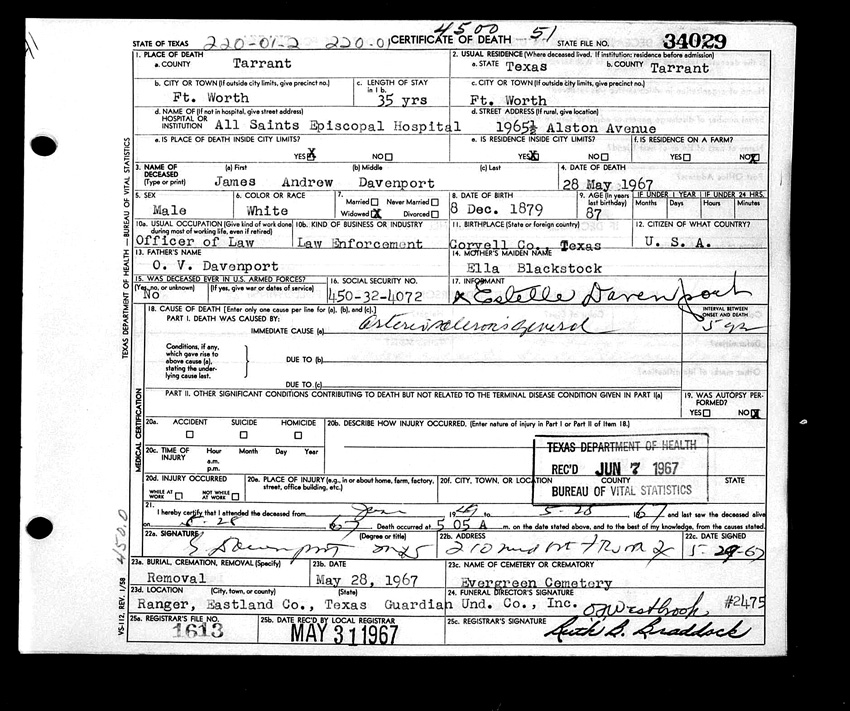 4500 51
STATE OF TEXAS 220-01-2 220.01 CERTIFICATE OF DEATH STATE FILE NO. 34029
1. PLACE OF DEATH
a. COUNTY Tarrant
2. USUAL RESIDENCE (Where deceased lived. If institution: residence before admission)
a. STATE Texas b. COUNTY Tarrant
b. CITY OR TOWN (If outside city limits, give precinct no.)
Ft. Worth
c. LENGTH OF STAY in 1 b.
35 yrs
c. CITY OR TOWN (If outside city limits, give precinct no.)
Ft. Worth
d. NAME OF (If not in hospital, give street address)
HOSPITAL OR
INSTITUTION All Saints Episcopal Hospital
d. STREET ADDRESS (If rural, give location)
1965½ Alston Avenue
e. IS PLACE OF DEATH INSIDE CITY LIMITS?
YES X NO
e. IS RESIDENCE INSIDE CITY LIMITS?
YES X NO
f. IS RESIDENCE ON A FARM?
YES NO X
3. NAME OF DECEASED (Type or print)
(a) First (b) Middle (c) Last
James Andrew Davenport
4. DATE OF DEATH
28 May 1967
5. SEX
Male
6. COLOR OR RACE
White
7.
Married Never Married
Widowed X Divorced
8. DATE OF BIRTH
8 Dec. 1879
9. AGE (In years last birthday)
87
IF UNDER 1 YEAR IF UNDER 24 HRS.
Months Days Hours Minutes
10a. USUAL OCCUPATION (Give kind of work done during most of working life, even if retired)
Officer of Law
10b. KIND OF BUSINESS OR INDUSTRY
Law Enforcement
11. BIRTHPLACE (State or foreign country)
Coryell Co., Texas
12. CITIZEN OF WHAT COUNTRY?
U. S. A.
13. FATHER'S NAME
O. V. Davenport
14. MOTHER'S MAIDEN NAME
Ella Blackstock
15. WAS DECEASED EVER IN U.S. ARMED FORCES?
(Yes, no, or unknown) (If yes, give war or dates of service)
No
16. SOCIAL SECURITY NO.
450-32-4072
17. INFORMANT
X Estelle Davenport
18. CAUSE OF DEATH [Enter only one cause per line for (a), (b), and (c).]
INTERVAL BETWEEN ONSET AND DEATH
PART I. DEATH WAS CAUSED BY:
IMMEDIATE CAUSE (a) general
Conditions, if any, which gave rise to above cause (a), stating the underlying cause last.
DUE TO (b)
DUE TO (c)
PART II. OTHER SIGNIFICANT CONDITIONS CONTRIBUTING TO DEATH BUT NOT RELATED TO THE TERMINAL DISEASE CONDITION GIVEN IN PART I(a)
19. WAS AUTOPSY PERFORMED?
YES NO X
20a. ACCIDENT SUICIDE HOMICIDE
20b. DESCRIBE HOW INJURY OCCURRED. (Enter nature of injury in Part I or Part II of Item 18.)
20c. TIME OF INJURY Hour Month Day Year
a.m.
p.m.
TEXAS DEPARTMENT OF HEALTH
REC'D JUN 7 1967
BUREAU OF VITAL STATISTICS
20d. INJURY OCCURRED
WHILE AT WORK NOT WHILE AT WORK
20e. PLACE OF INJURY (e.g., in or about home, farm, factory, street, office building, etc.)
20f. CITY, TOWN, OR LOCATION COUNTY STATE
21. I hereby certify that I attended the deceased from Jan 19 to 5-28 1967 and last saw the deceased alive
on 5-28 67 Death occurred at 5 05 A m. on the date stated above, and to the best of my knowledge, from the causes stated.
22a. SIGNATURE (Degree or title)
Davenport
22b. ADDRESS
22c. DATE SIGNED
5-29-67
23a. BURIAL, CREMATION, REMOVAL (Specify)
Removal
23b. DATE
May 28, 1967
23c. NAME OF CEMETERY OR CREMATORY
Evergreen Cemetery
23d. LOCATION (City, town, or county) (State)
Ranger, Eastland Co., Texas
24. FUNERAL DIRECTOR'S SIGNATURE
Guardian Und. Co., Inc. Westbrook, #2475
25a. REGISTRAR'S FILE NO.
1613
25b. DATE REC'D BY LOCAL REGISTRAR
MAY 31 1967
25c. REGISTRAR'S SIGNATURE
Ruth B. Braddock
TEXAS DEPARTMENT OF HEALTH — BUREAU OF VITAL STATISTICS
MEDICAL CERTIFICATION
VS-112, REV. 1/58
450.0